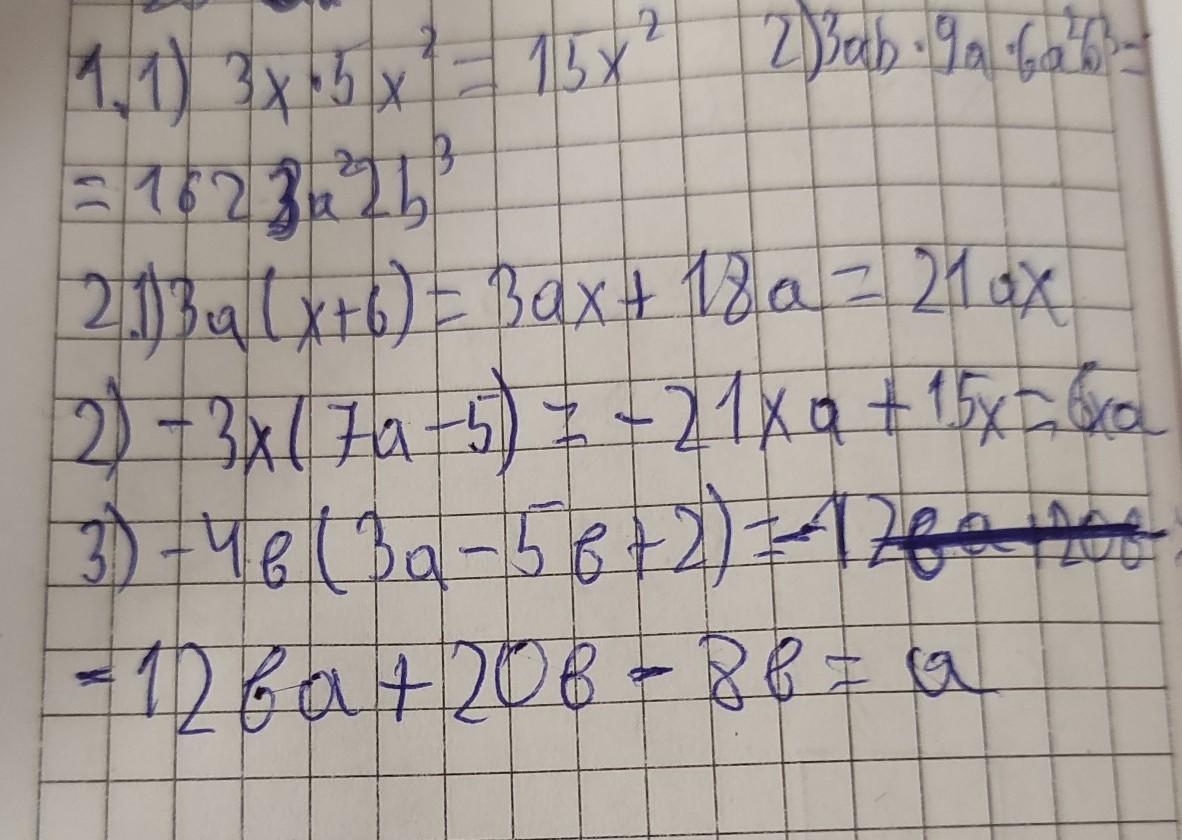 1.1) 3x·5x² = 15x² 2) 3ab·9a·6a²b³ =
= 162 3a²2b³
2.1) 3a(x+6) = 3ax + 18a = 21ax
2) -3x(7a-5) = -21xa + 15x = 6xa
3) -4в(3a-5в+2) = -12
-12вa + 20в - 8в = a